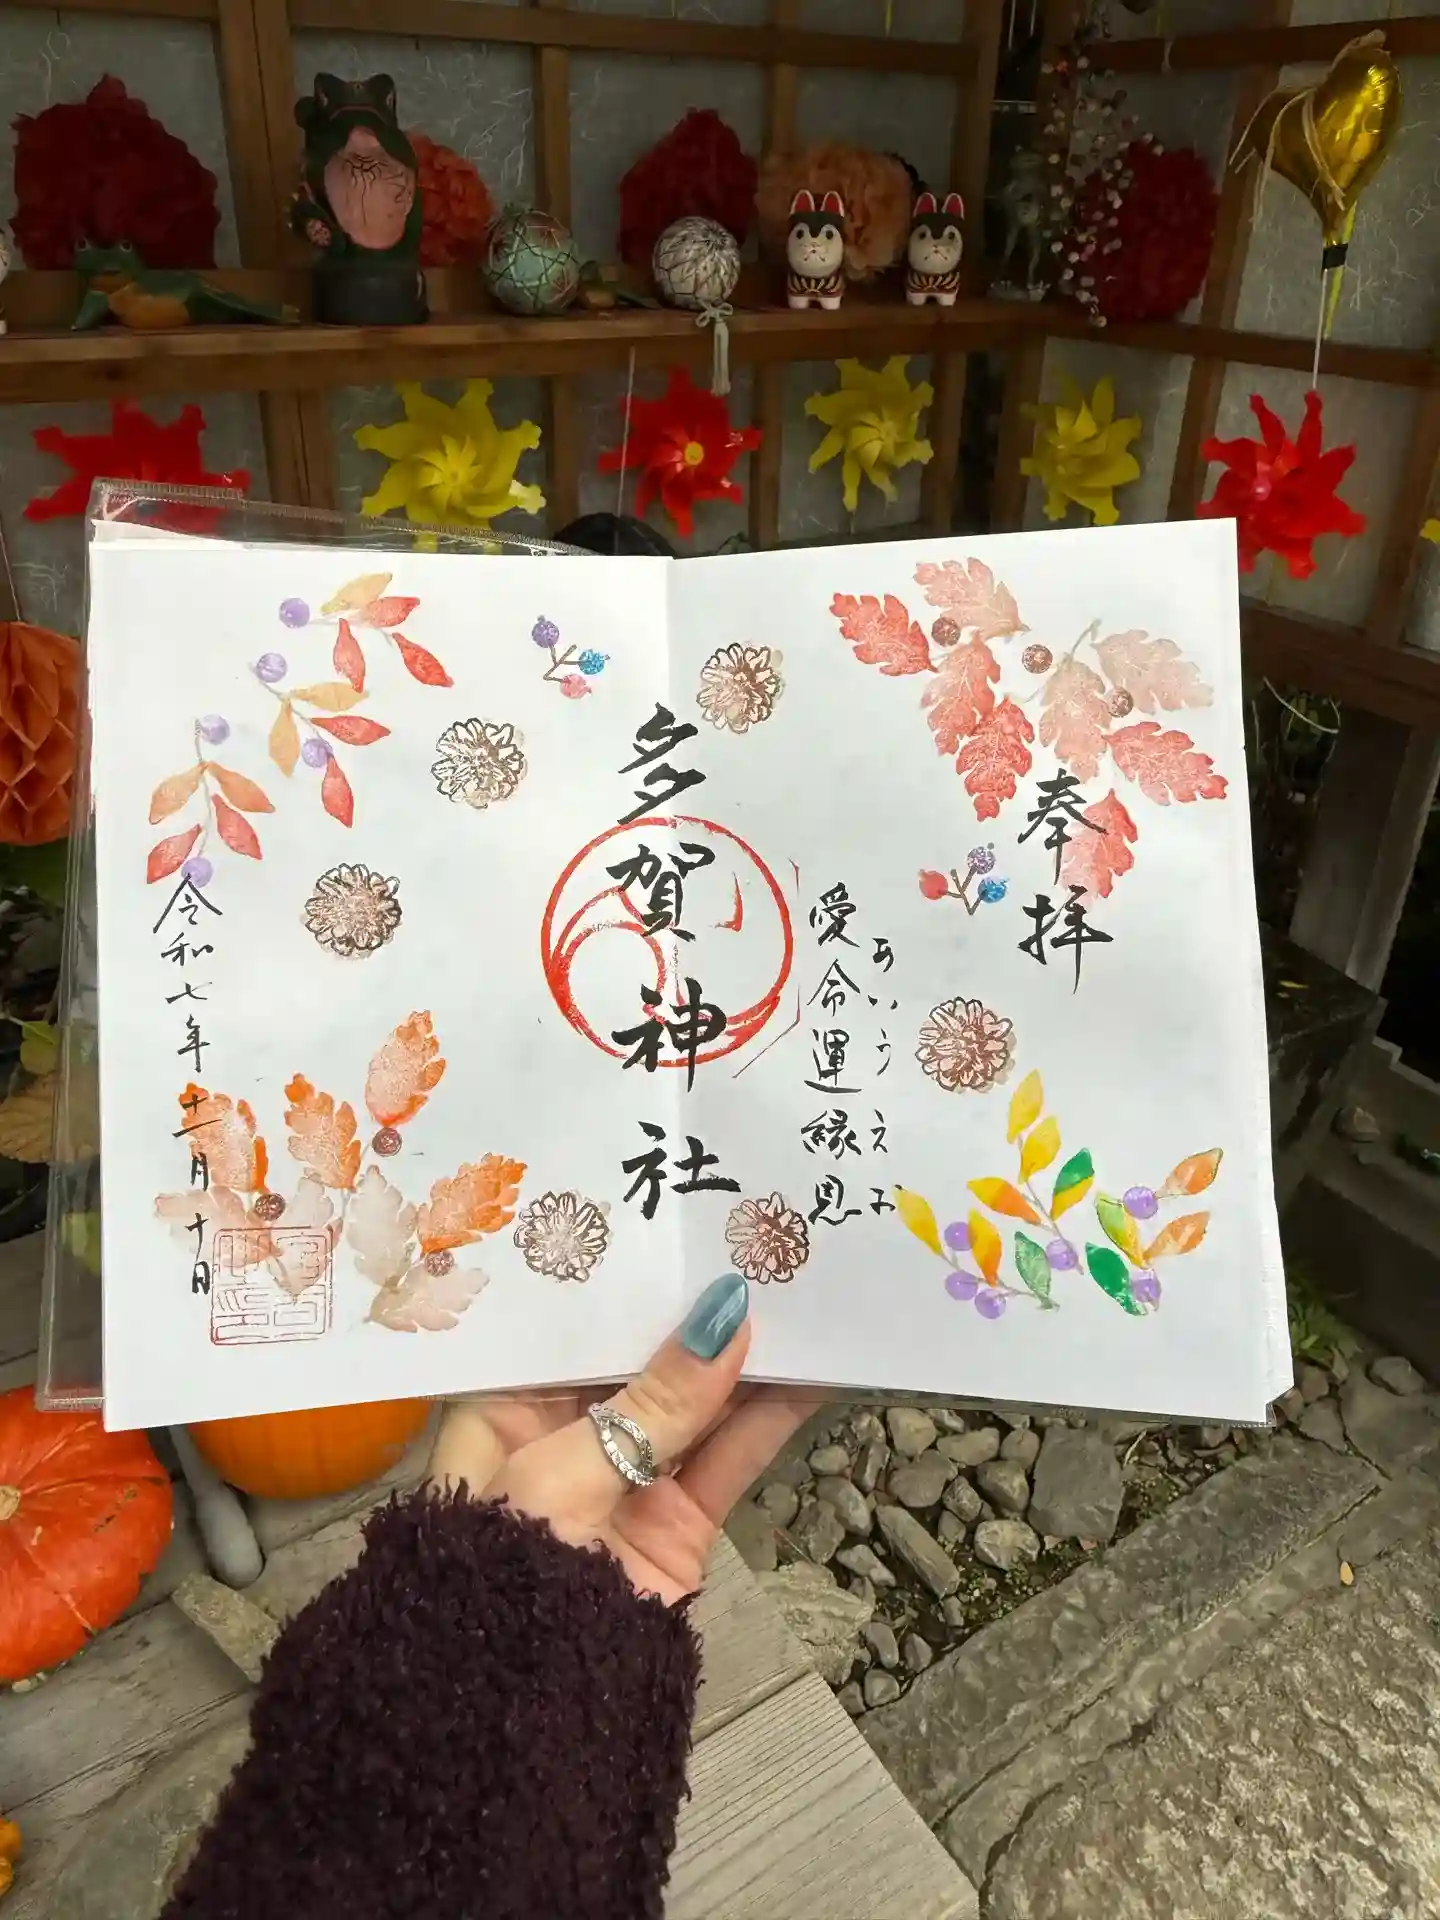 奉拝
あいうえお
愛命運縁恩
多賀神社
令和七年十一月十日